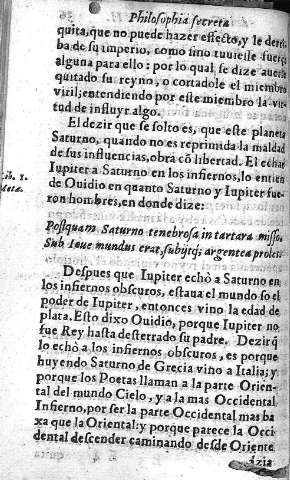 Philosophia secreta
quita, que no puede hazer effecto, y le derri-
ba de su imperio, como sino tuuiesse fuerça
alguna para ello: por lo qual se dize auerle
quitado su reyno, o cortadole el miembro
viril; entendiendo por este miembro la vir-
tud de influyr algo.
El dezir que se solto es, que este planeta
Saturno, quando no es reprimida la maldad
de sus influencias, obra cõ libertad. El echar
Iupiter a Saturno en los infiernos, lo entien
Lib. 1.
de Ouidio en quanto Saturno y Iupiter fue-
ron hombres, en donde dize:
Postquam Saturno tenebrosa in tartara misso,
Sub Ioue mundus erat, subijtq; argentea proles.
Despues que Iupiter echò a Saturno en
los infiernos obscuros, estaua el mundo so el
poder de Iupiter, entonces vino la edad de
plata. Esto dixo Ouidio, porque Iupiter no
fue Rey hasta desterrado su padre. Dezir q̃
lo echò a los infiernos obscuros, es porque
huyendo Saturno de Grecia vino a Italia; y
porque los Poetas llaman a la parte Orien-
tal del mundo Cielo, y a la mas Occidental
Infierno, por ser la parte Occidental mas ba
xa que la Oriental: y porque parece la Occi
dental descender caminando desde Oriente
àzia